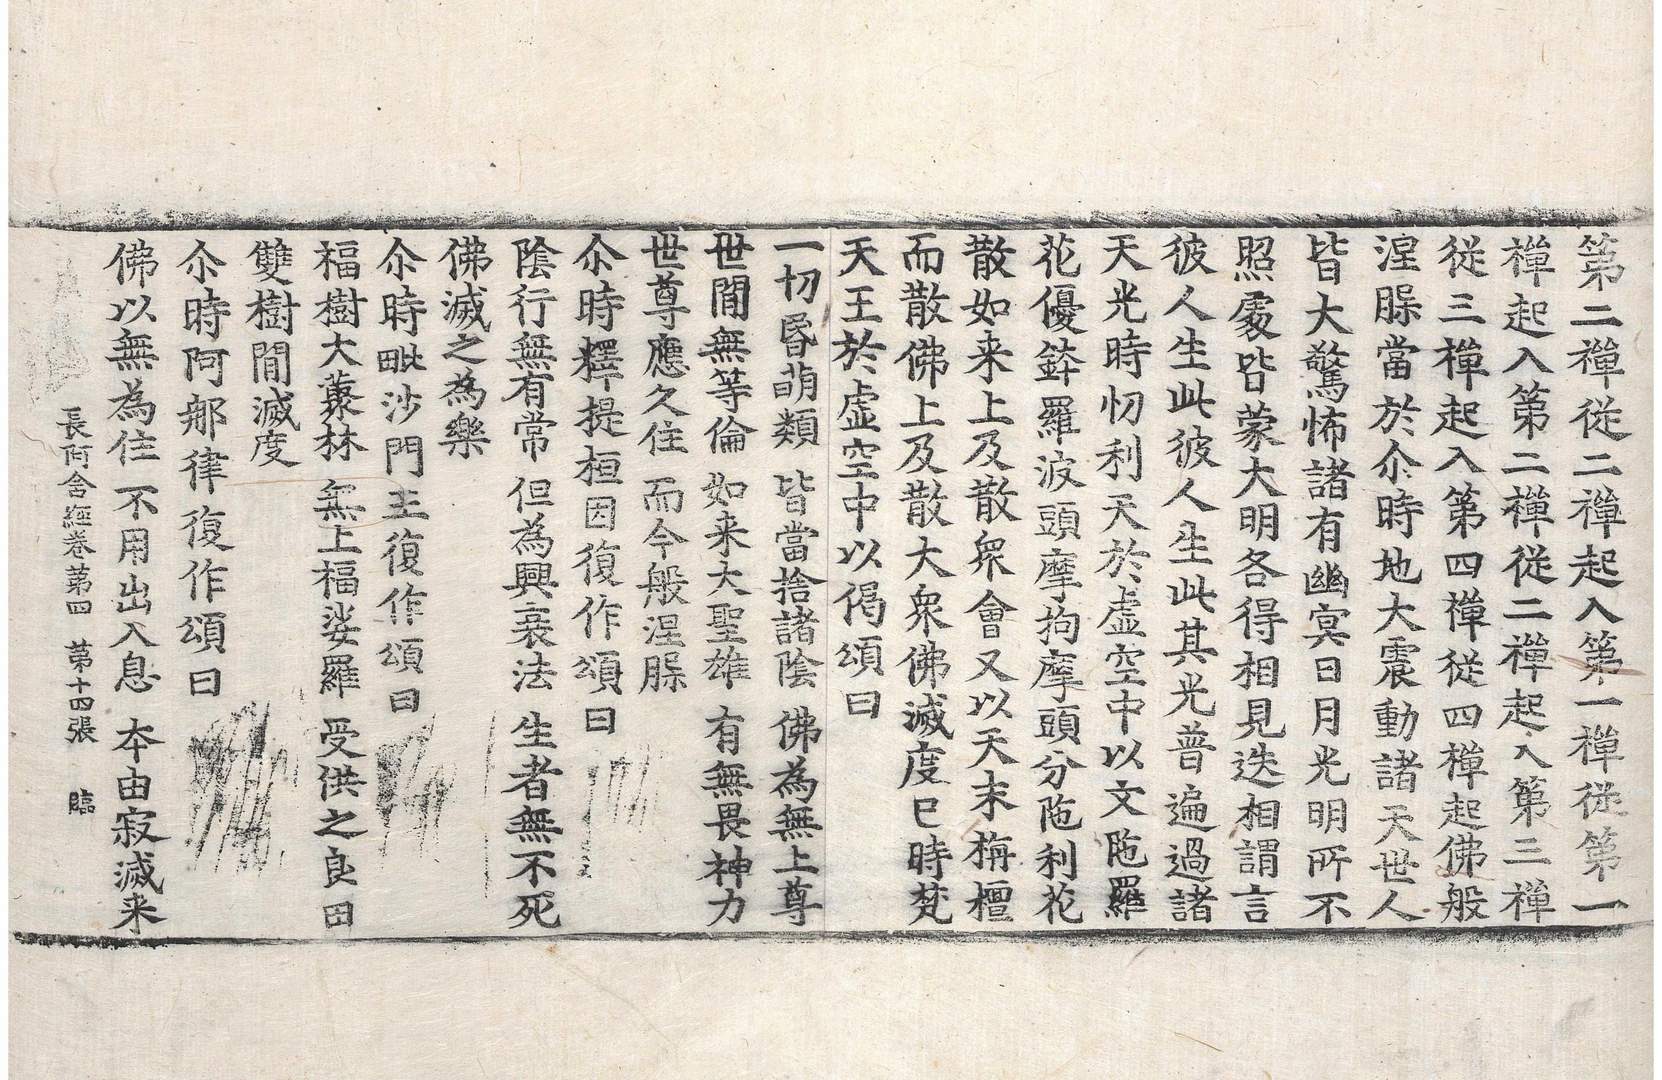 第二禪從二禪起入第一禪從第一
禪起入第二禪從二禪起入第三禪
從三禪起入第四禪從四禪起佛般
涅槃當於尒時地大震動諸天世人
皆大驚怖諸有幽冥日月光明所不
照處皆蒙大明各得相見迭相謂言
彼人生此彼人生此其光普遍過諸
天光時忉利天於虛空中以文陁羅
花優鉢羅波頭摩拘摩頭分陁利花
散如来上及散衆會又以天末栴檀
而散佛上及散大衆佛滅度已時梵
天王於虛空中以偈頌曰
一切昏萌類　皆當捨諸陰　佛為無上尊
世間無等倫　如来大聖雄　有無畏神力
世尊應久住　而今般涅槃
尒時釋提桓因復作頌曰
陰行無有常　但為興衰法　生者無不死
佛滅之為樂
尒時毗沙門王復作頌曰
福樹大藂林　無上福娑羅　受供之良田
雙樹間滅度
尒時阿那律復作頌曰
佛以無為住　不用出入息　本由寂滅来
長阿含經卷第四　第十四張　臨